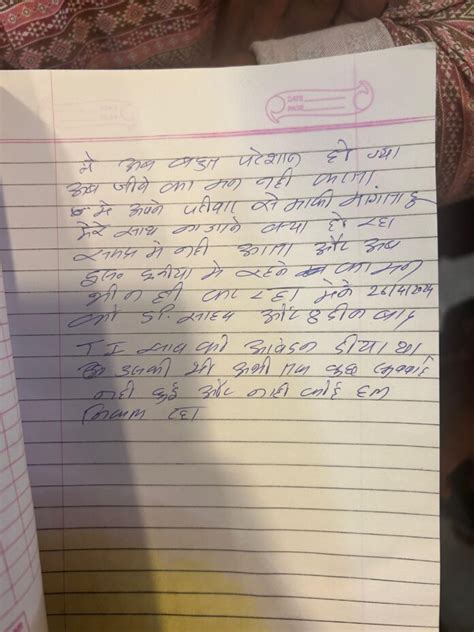 DATE
PAGE
मे अब बहुत परेशान हो ग्या
अब जीने का मन नही करता
मे अपने परीवार से माफी मांगता हु
मेरे साथ ना जाने क्या हो रहा
समझ मे नही आता और अब
इस दुनीया मे रहने का मन
भी नही कर रहा मेने 26/4/2024
को S.P. साहब और 8 दीन बाद
T I साब को आवेदन दीया था
उसकी भी अभी तक कुछ
नही हुई और नाही कोई हल
निकल रहा